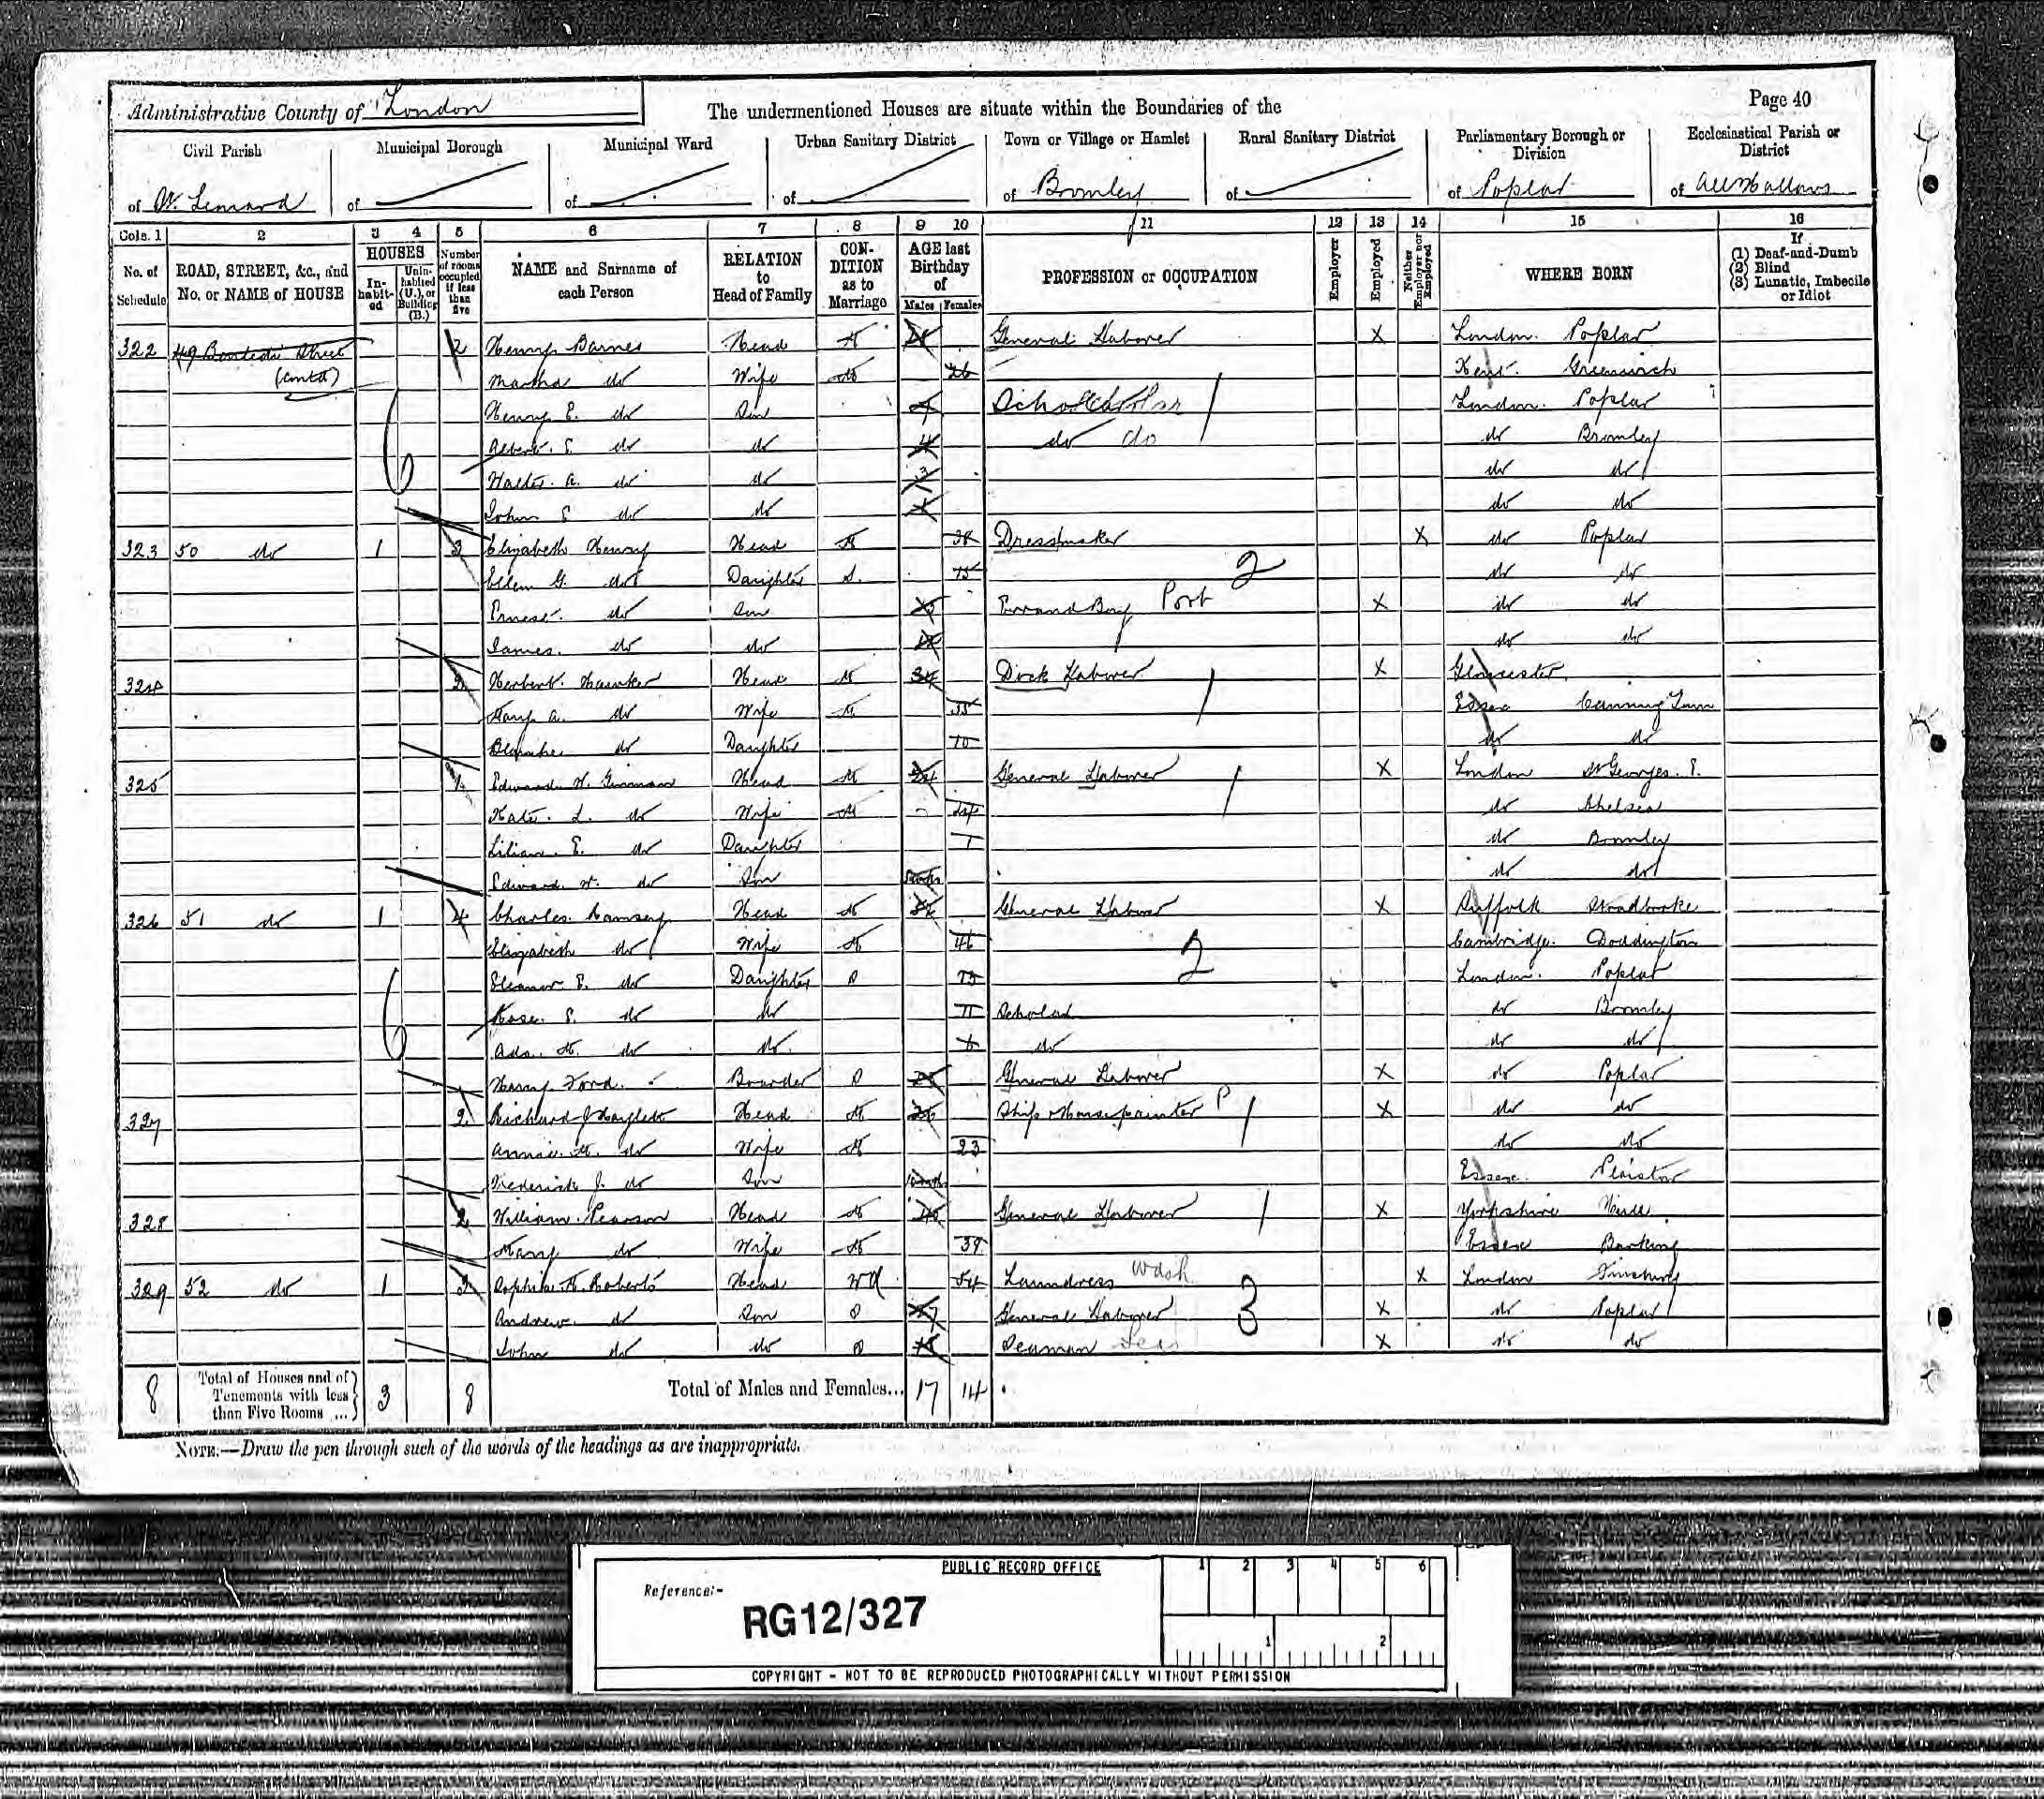 Administrative County of London
The undermentioned Houses are situate within the Boundaries of the
Page 40
Civil Parish of St. Leonard
Municipal Borough of
Municipal Ward of
Urban Sanitary District of
Town or Village or Hamlet of Bromley
Rural Sanitary District of
Parliamentary Borough or Division of Poplar
Ecclesiastical Parish or District of All Hallows
Cols. 1 2 3 4 5 6 7 8 9 10 11 12 13 14 15 16
No. of Schedule
ROAD, STREET, &c., and No. or NAME of HOUSE
HOUSES
In-habit-ed
Unin-habited (U.), or Building (B.)
Number of rooms occupied if less than five
NAME and Surname of each Person
RELATION to Head of Family
CON-DITION as to Marriage
AGE last Birthday of
Males Females
PROFESSION or OCCUPATION
Employer
Employed
Neither Employer nor Employed
WHERE BORN
If (1) Deaf-and-Dumb (2) Blind (3) Lunatic, Imbecile or Idiot
322 49 Street 2 Henry Barnes Head M General Laborer X London Poplar
(contd) Martha do Wife M 26 Kent Greenwich
Henry E. do Son Scholar London Poplar
Albert E. do do 4 do do do Bromley
Walter A. do do 3 do do
John E do do do do
323 50 do 1 3 Elizabeth Henry Head M 38 Dressmaker X do Poplar
Ellen G. do Daughter S. 15 do do
Ernest do Son Errand Boy Port X do do
James do do do do
324 2 Herbert Hawker Head M 34 Dock Laborer X Gloucester
Mary A. do Wife M 35 Essex Canning Town
Blanche do Daughter 10 do do
325 1 Edward W. Head M 24 General Laborer X London St Georges E.
Kate L. do Wife M 24 do Chelsea
Lilian E. do Daughter 1 do Bromley
Edward W. do Son do do
326 51 do 1 4 Charles Ramsey Head M General Laborer X Suffolk Stradbroke
Elizabeth do Wife M 46 Cambridge Doddington
Eleanor E. do Daughter S 15 London Poplar
Rose E. do do 11 Scholar do Bromley
Ada M. do do do do do
Henry Ford Boarder S General Laborer X do Poplar
327 2 Richard J Head M Ship & House painter P X do do
Annie M. do Wife M 23 do do
Frederick J. do Son Essex Plaistow
328 2 William Pearson Head M General Laborer X Yorkshire Hull
Mary do Wife M 39 Essex Barking
329 52 do 1 3 Sophia M. Roberts Head Wd 54 Laundress Wash X London Finsbury
Andrew do Son S General Laborer X do Poplar
John do do S Seaman Sea X do do
8 Total of Houses and of Tenements with less than Five Rooms ... 3 8
Total of Males and Females... 17 14
NOTE.—Draw the pen through such of the words of the headings as are inappropriate.
PUBLIC RECORD OFFICE
1 2 3 4 5 6
Reference:-
RG12/327
1 2
COPYRIGHT - NOT TO BE REPRODUCED PHOTOGRAPHICALLY WITHOUT PERMISSION